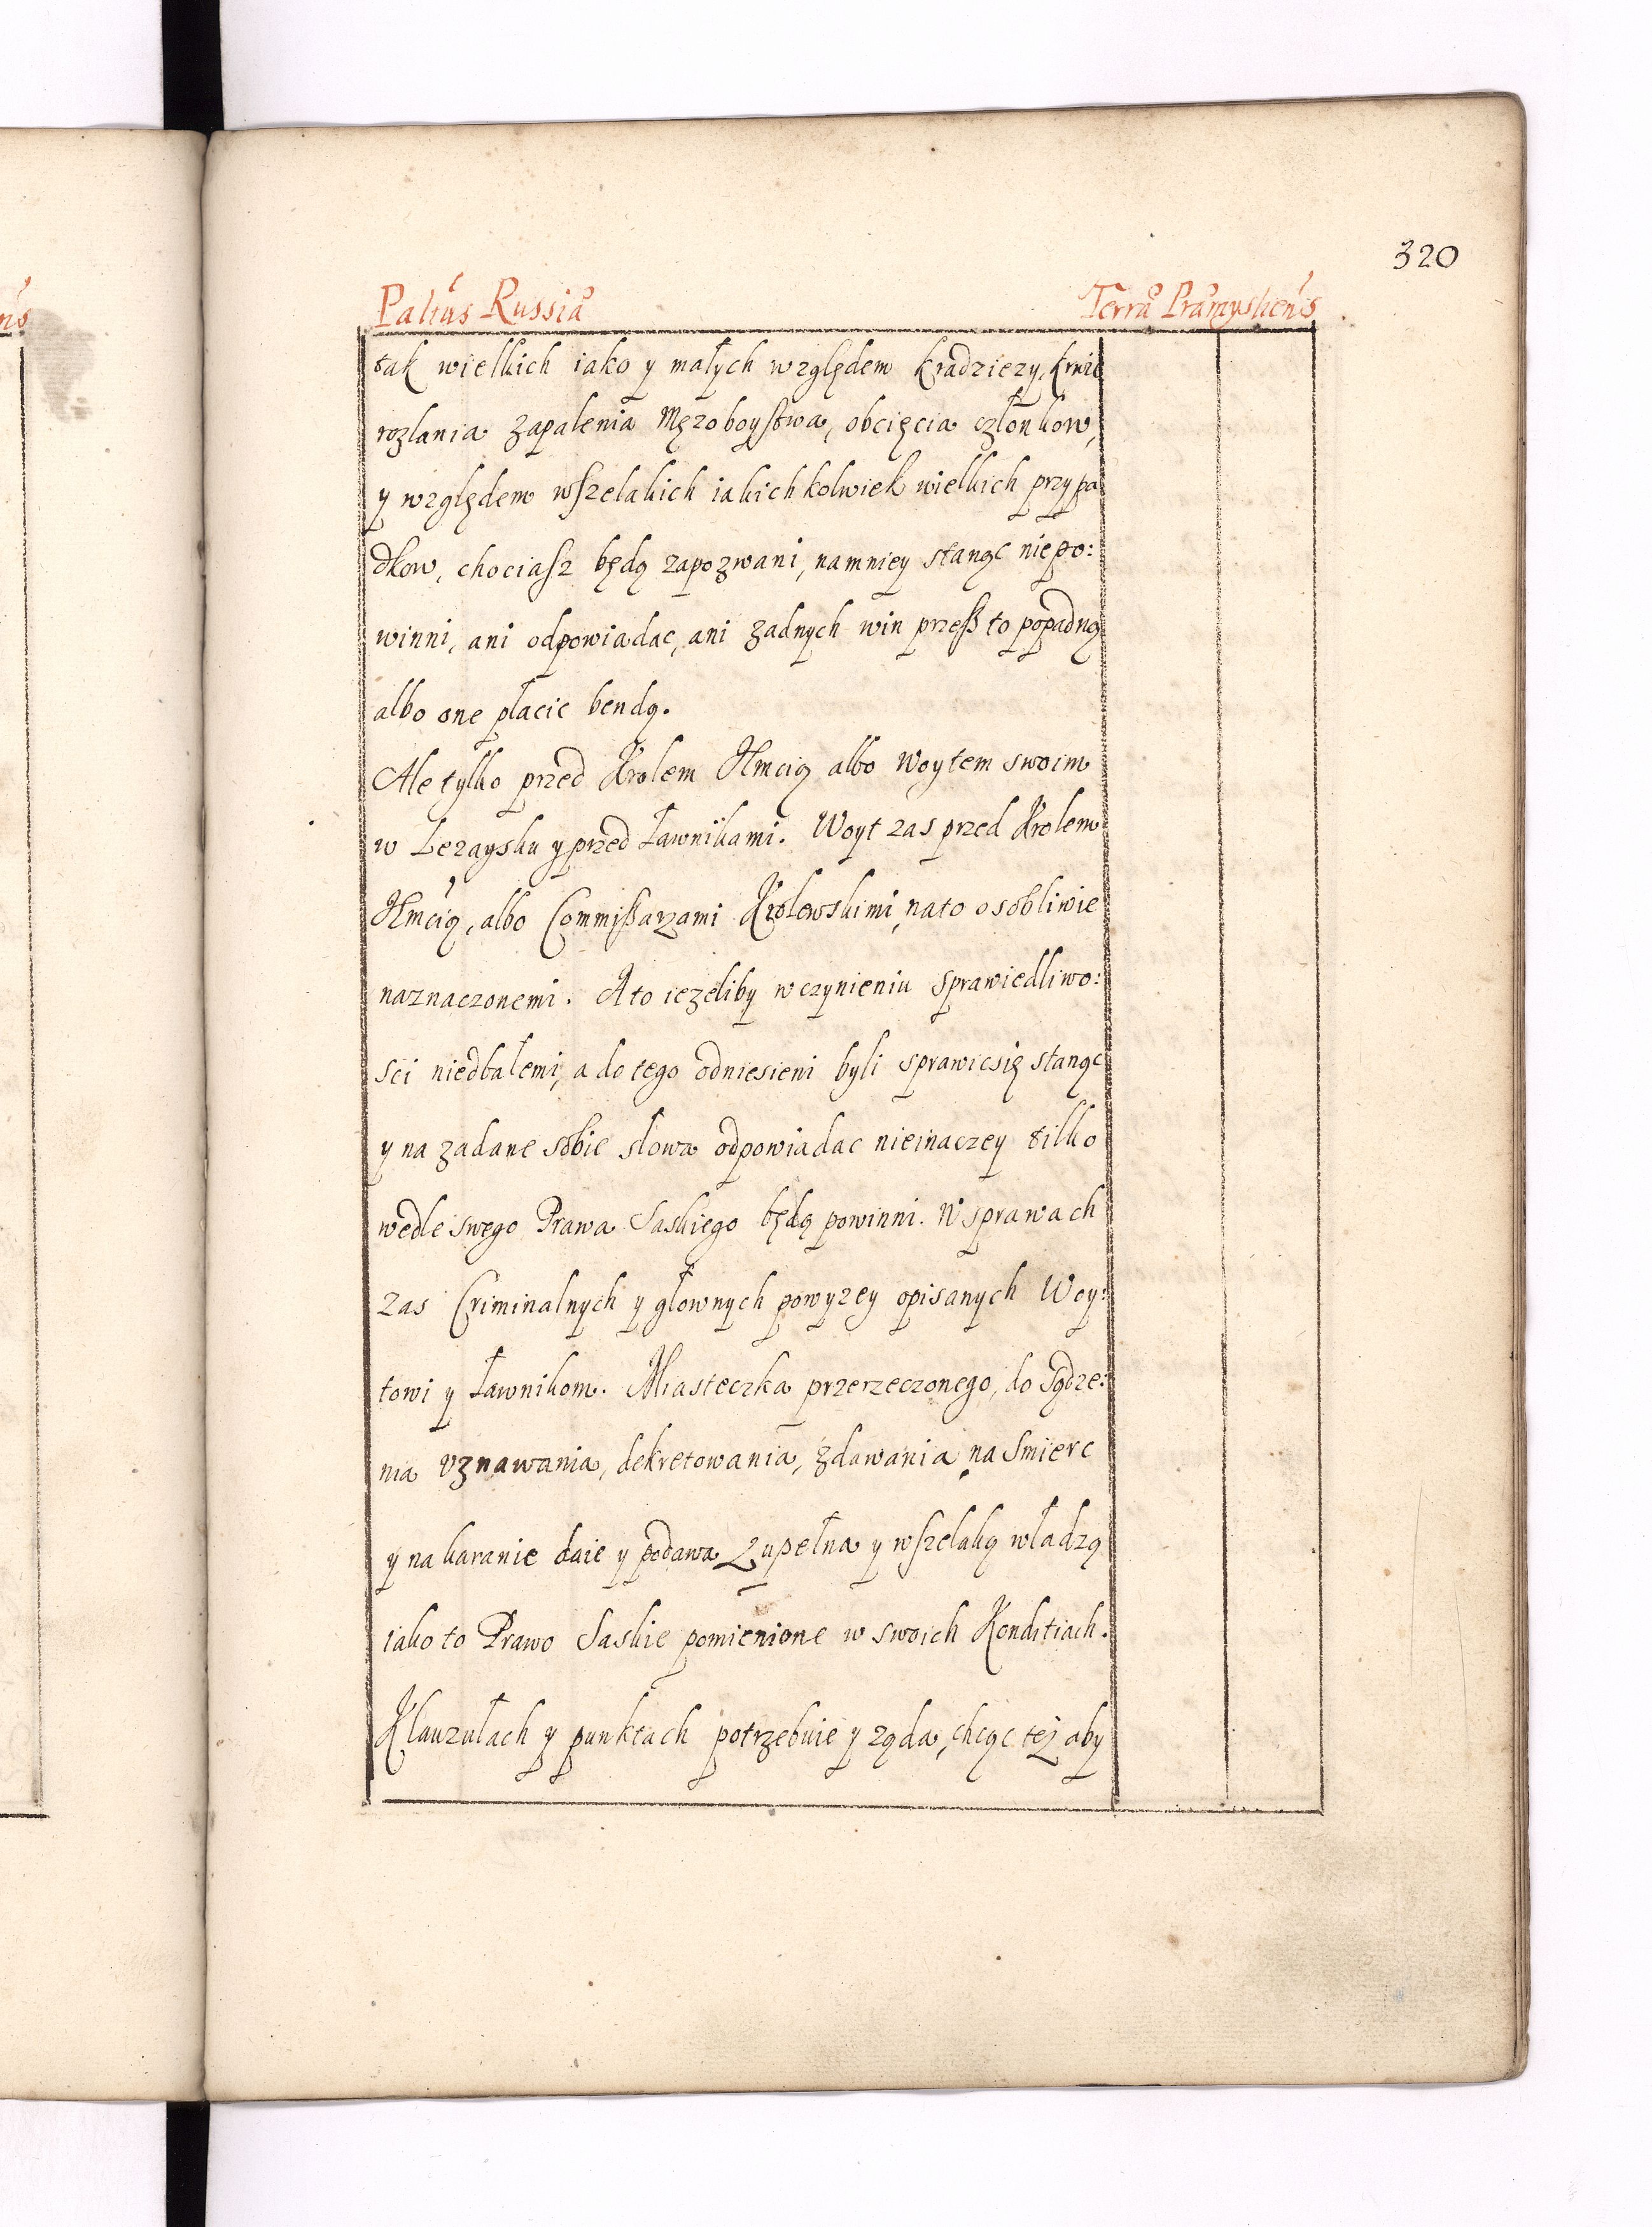 320
Palťus Russiæ
Terræ Præmyslien̄s
tak wielkich iako y małych względem kradziezy, krwie
rozlania zapalenia Męzoboystwa, obcięcia członkow,
y względem wszelakich iakichkolwiek wielkich przypa
dkow, chociasz będą zapozwani, namniey stanąc niepo:
winni, ani odpowiadac, ani zadnych win przesz to popadną
albo one płacic bendą.
Ale tylko przed Krolem JKmcią albo Woytem swoim
w Lezaysku y przed Ławnikami. Woyt zas przed Krolem
JKmcią, albo Commissarzami Krolewskimi, nato osobliwie
naznaczonemi. A to iezeliby w czynieniu sprawiedliwo:
sci niedbałemi, a do tego odniesieni byli sprawicsię stanąc
y na zadane sobie słowa odpowiadac nieinaczey tilko
wedle swego Prawa Saskiego będą powinni. W sprawach
zas Criminalnych y głownych powyzey opisanych Woy:
towi y Ławnikom. Miasteczka przerzeczonego, do Sądze:
nia Vznawania, dekretowania, zdawania na Smierc
y na karanie daie y podawa Zupełna y wszelaką władzą
iako to Prawo Saskie pomienione w swoich Konditiach.
Klauzułach y punktach potrzebuie y ząda, chcąc tej aby